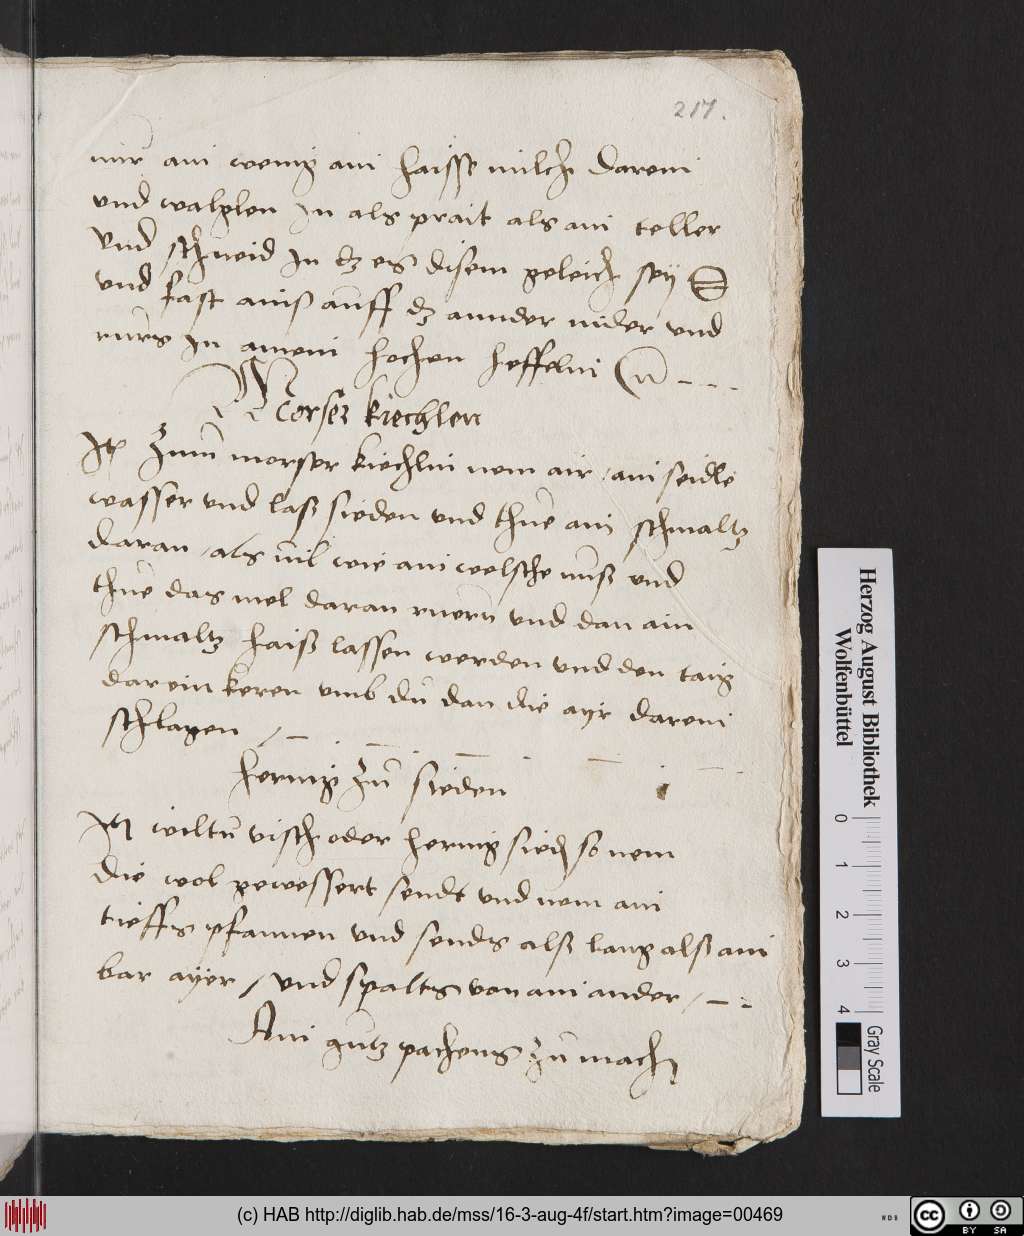 217.
nur ain wenig ain haisse milch darein
vnd walglen In als prait als ain teller
vnd schneid In dz es disem geleich sey
vnd fast ainß auff dz annder nider vnd
rures In ainem hochen heffelin
Morser kiechlen
Itz Zum morser kiechlin nem air ain seidle
wasser vnd laß sieden vnd thue ain schmaltz
daran als vil wie ain welsche nuß vnd
thue das mel daran ruern vnd dan ain
schmaltz haiß lassen werden vnd den taig
darein keren vmb du dan die ayr darein
schlagen
hering zu sieden
Itz wiltu visch oder hering sieden so nem
die wol gewessert sendt vnd nem ain
tieffe pfannen vnd sends alß lang alß ain
bar ayer / vnd spalts von ain ander
Ain gutz pachens zu machen
Herzog August Bibliothek
Wolfenbüttel
0 1 2 3 4
Gray Scale
(c) HAB http://diglib.hab.de/mss/16-3-aug-4f/start.htm?image=00469
WDB
cc BY SA